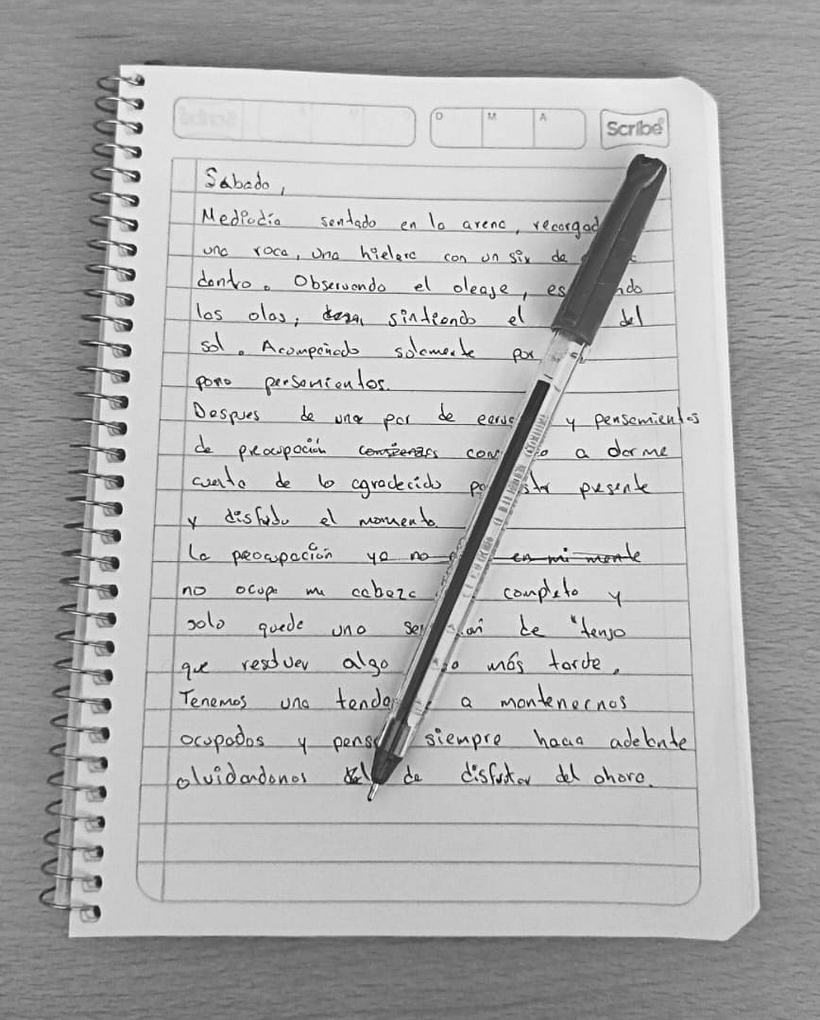 D M A Scribe
Sabado,
Mediodía sentado en la arena, recargad
una roca, una hielera con un six de
dentro. Observando el oleaje, es ndo
las olas, sintiendo el del
sol. Acompañado solamente por
pensamientos.
Despues de una par de y pensamientos
de preocupación comienzas con o a darme
cuenta de lo agradecido po star presente
y disfruto el momento.
La preocupación ya no en mi mente
no ocupa mi cabeza completo y
solo quede una se de "tengo
que resolver algo más tarde,
Tenemos una tende a mantenernos
ocupados y pens siempre hacia adelante
olvidandonos de disfrutar del ahora.